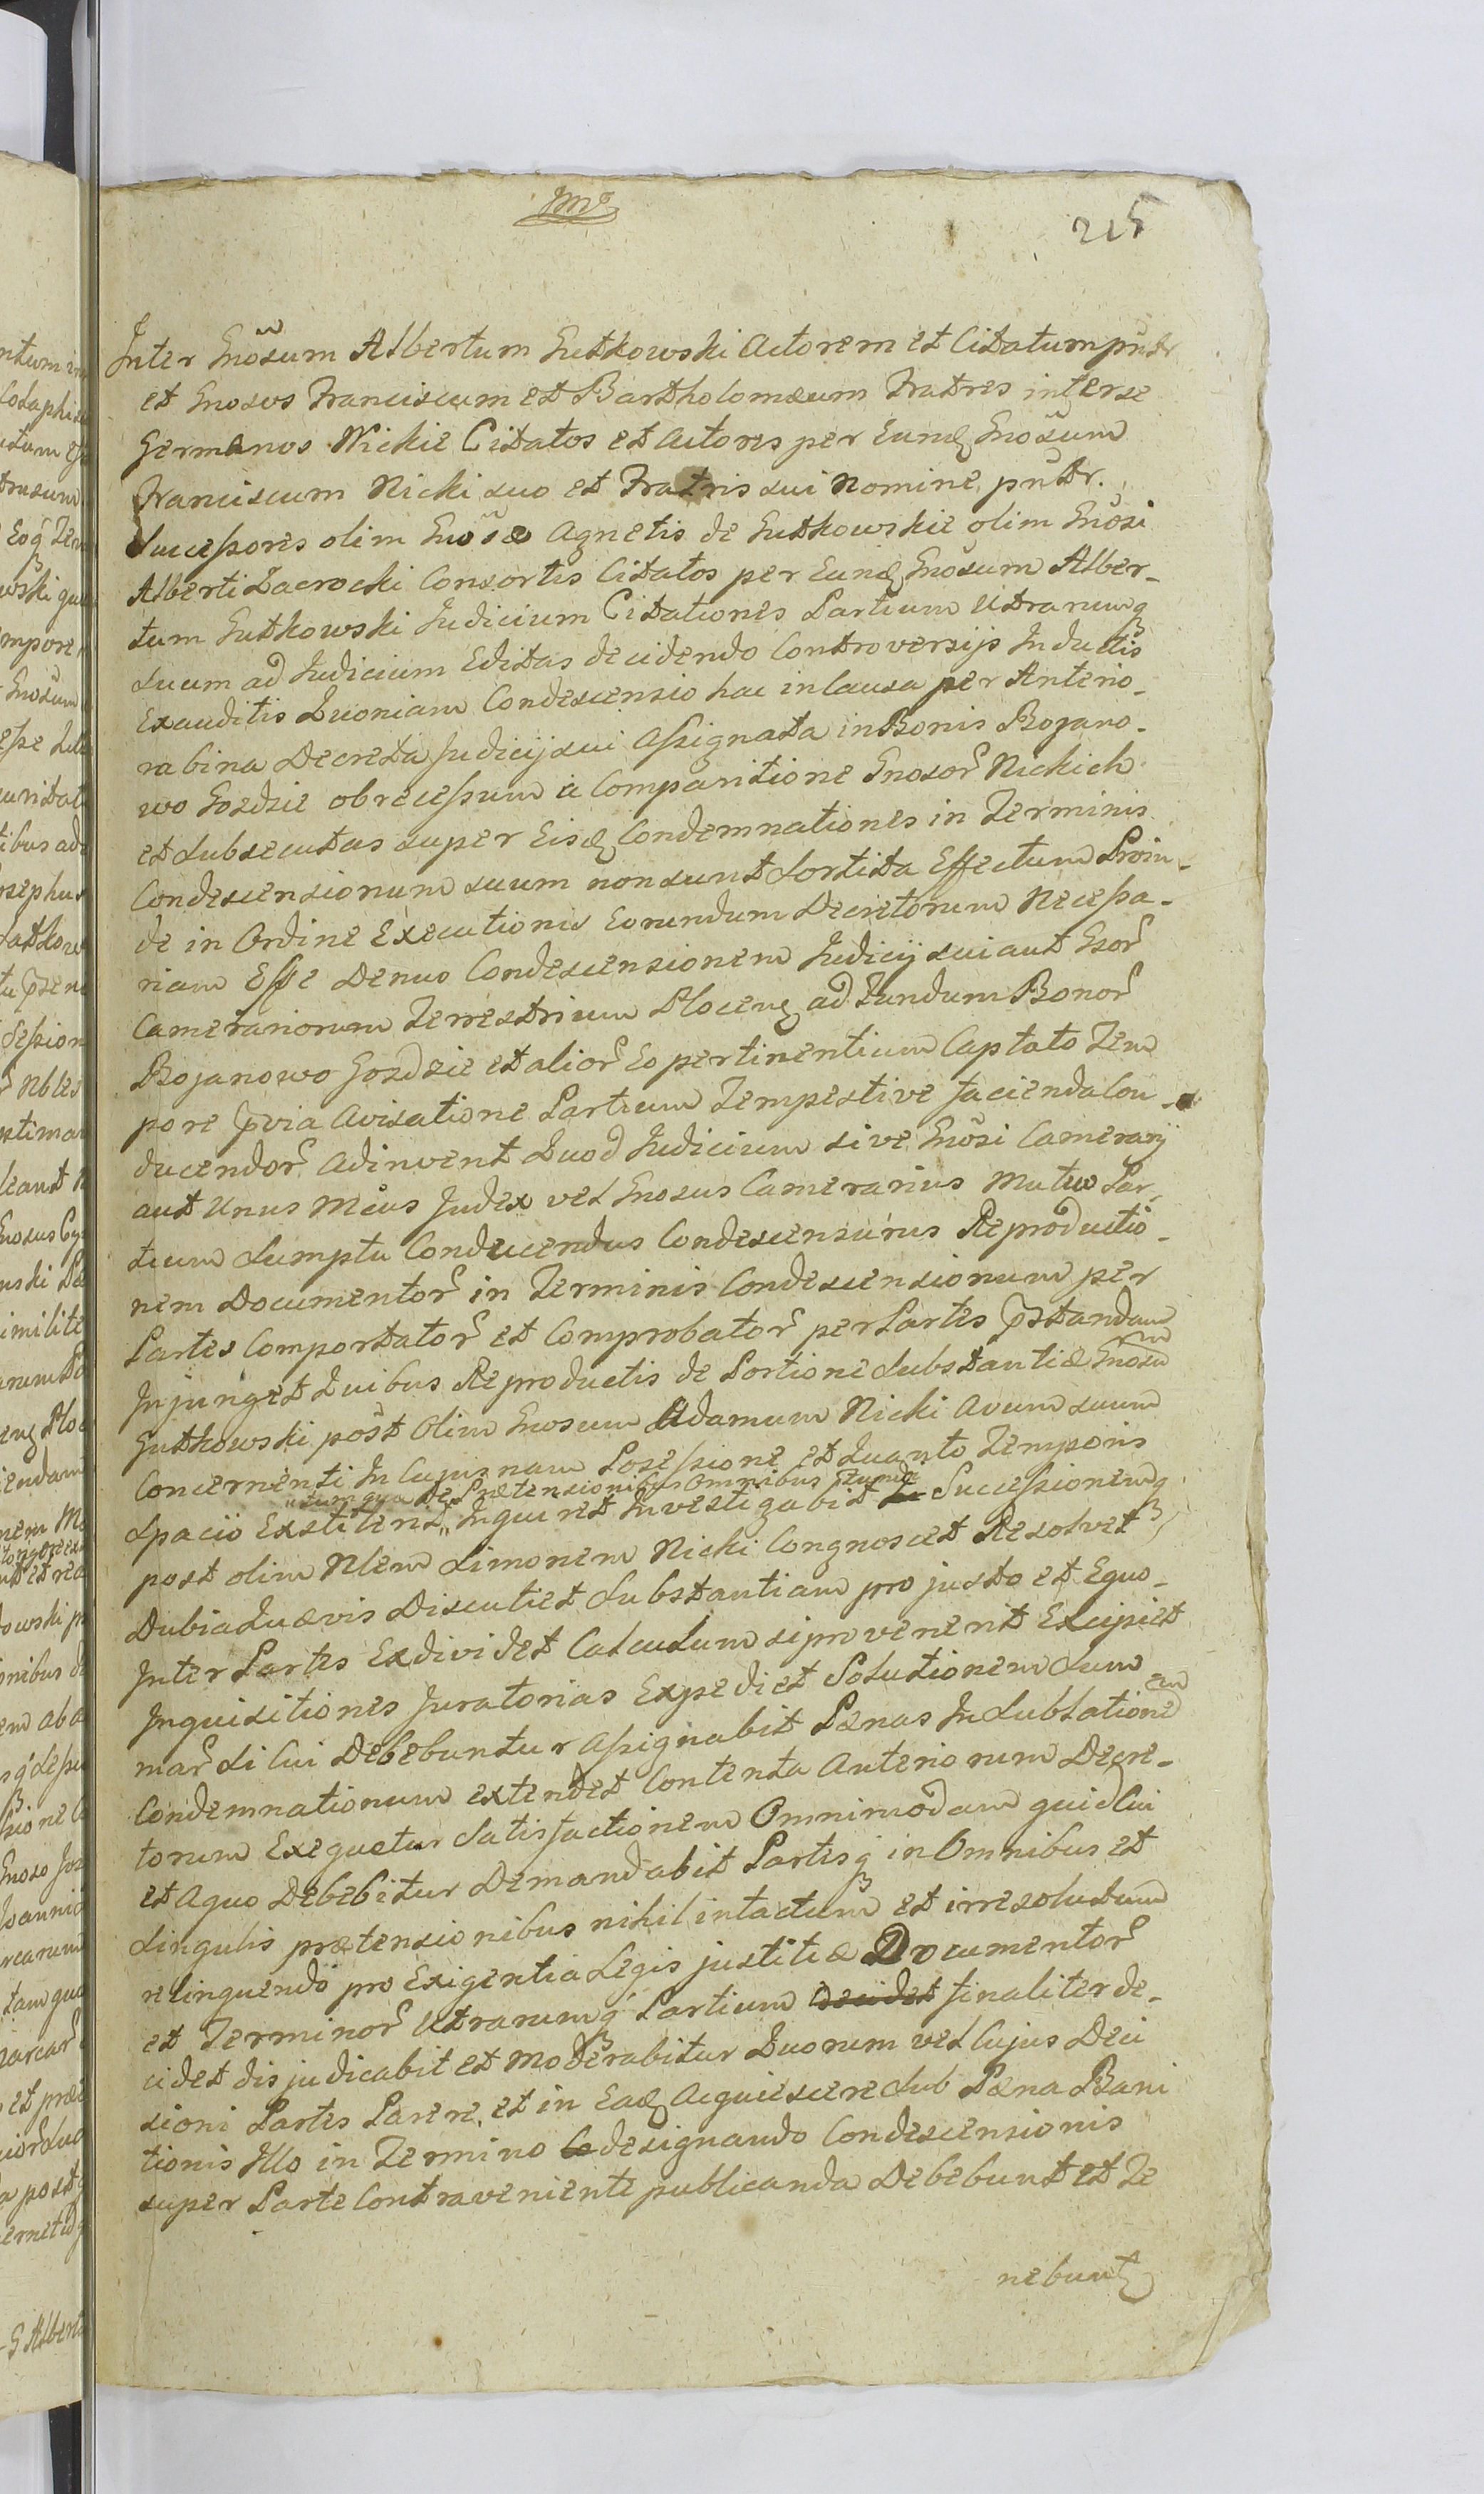 Mo
215
Inter Gnosum Albertum Gutkowski Actorem et Citatum pnstr
et Gnosos Franciscum et Bartholomæum Fratres inter se
Germanos Nickie Citatos et Actores per Eundq Gnosum
Franciscum Nicki suo et Fratris sui Nomine pnstr.
Successores olim Gnosæ Agnetis de Gutkowskie olim Gnosi
Alberti Zacrocki Consortis Citatos per Eundq Gnosum Alber-
tum Gutkowski Judicium Citationes Partium Utrarumq
Suum ad Judicium Editas decidendo Controversijs Inductis
Exauditis Quoniam Condescensio hac in Causa per Anterio-
ra bina Decreta Judicij sui Assignata in Bonis Bojano-
wo Gozdzie ob recessum a Comparitione Gnosor Nickich
et Subsecutas super Eisdq Condemnationes in Terminis
Condescensionum suum non sunt Sortita Effectum Proin-
de in Ordine Executionis Eorundum Decretorum Necessa-
riam Esse Denuo Condescensionem Judicij sui aut Gsor
Camerariorum Terrestrium Plocenq ad Fundum Bonor
Bojanowo Gozdzie et alior Eo pertinentium Captato Tem
pore pvia Avisatione Partium Tempestive facienda Con-
ducendor Adinvent Quod Judicium sive Gnosi Camerarij
aut Unus Mcus Judex vel Gnosus Camerarius Mutuo Par-
tium Sumptu Conducendus Condescensurus Reproductio-
nem Documentor in Terminis Condescensionum per
Partes Comportator et Comprobator per Partes pstandam
Injunget Quibus Reproductis de Portione Substantiæ Gnosum
Gutkowski post Olim Gnosum Adamum Nicki Avum suum
Concernenti In Cujusnam Possessione et Quanto Temporis
tum qua De Prætensionibus Omnibus
Spacio Exstiterit Inquiret Investigabit Successionemq
post olim Nlem Simonem Nicki Congnoscet Resolvet
Dubia Quævis Discutiet Substantiam pro justo et Equo-
Inter Partes Exdividet Calculum si provenerit Excipiet
Inquisitiones Juratorias Expediet Solutionem Sum
mar Si Cui Debebuntur Assignabit Pænas In Sublationem
Condemnationum extendet Contenta Anteriorum Decre-
torum Exequetur Satisfactionem Omnimodam quid Cui
et Aquo Debebitur Demandabit Partesq in Omnibus et
Singulis prætensionibus nihil intactum et irresolutum
relinquendo pro Exigentia Legis justitiæ Documentor
et Terminor Utrarumq Partium decidet finaliter de-
cidet disjudicabit et Moderabitur Quorum vel Cujus Deci
sioni Partes Parere et in Eadq Acquiescere Sub Pæna Bani
tionis Illo in Termino Co designando Condescensionis
super Parte Contraveniente publicanda Debebunt et Te
nebunt